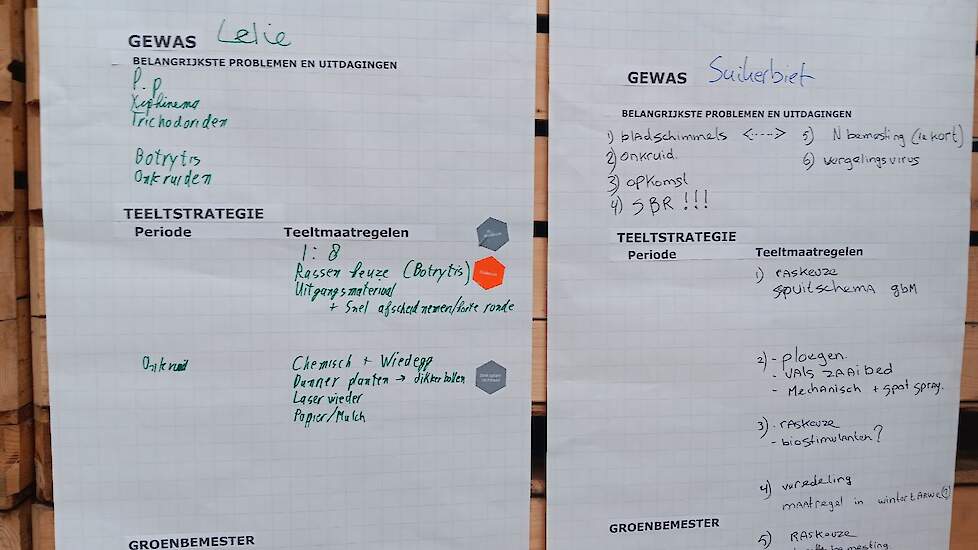 GEWAS Lelie
BELANGRIJKSTE PROBLEMEN EN UITDAGINGEN
P.P
Xiphinema
Trichodoriden
Botrytis
Onkruiden
TEELTSTRATEGIE
Periode Teeltmaatregelen
1:8
Rassen keuze (Botrytis)
Uitgangsmateriaal
+ Snel afscheid nemen/korte ronde
Onkruid Chemisch + Wiedegg
Dunner planten → dikker bollen
Laser wieder
Papier/Mulch
GROENBEMESTER
GEWAS Suikerbiet
BELANGRIJKSTE PROBLEMEN EN UITDAGINGEN
1) bladschimmels <----> 5) N bemesting (te kort)
2) onkruid. 6) vergelingsvirus
3) opkomst
4) SBR !!!
TEELTSTRATEGIE
Periode Teeltmaatregelen
1) raskeuze
spuitschema gbm
2) - ploegen.
- vals zaaibed
- Mechanisch + spot spray.
3) - raskeuze
- biostimulanten?
4) veredeling
maatregel in wintertarwe (?)
GROENBEMESTER
5) Raskeuze
bemesting